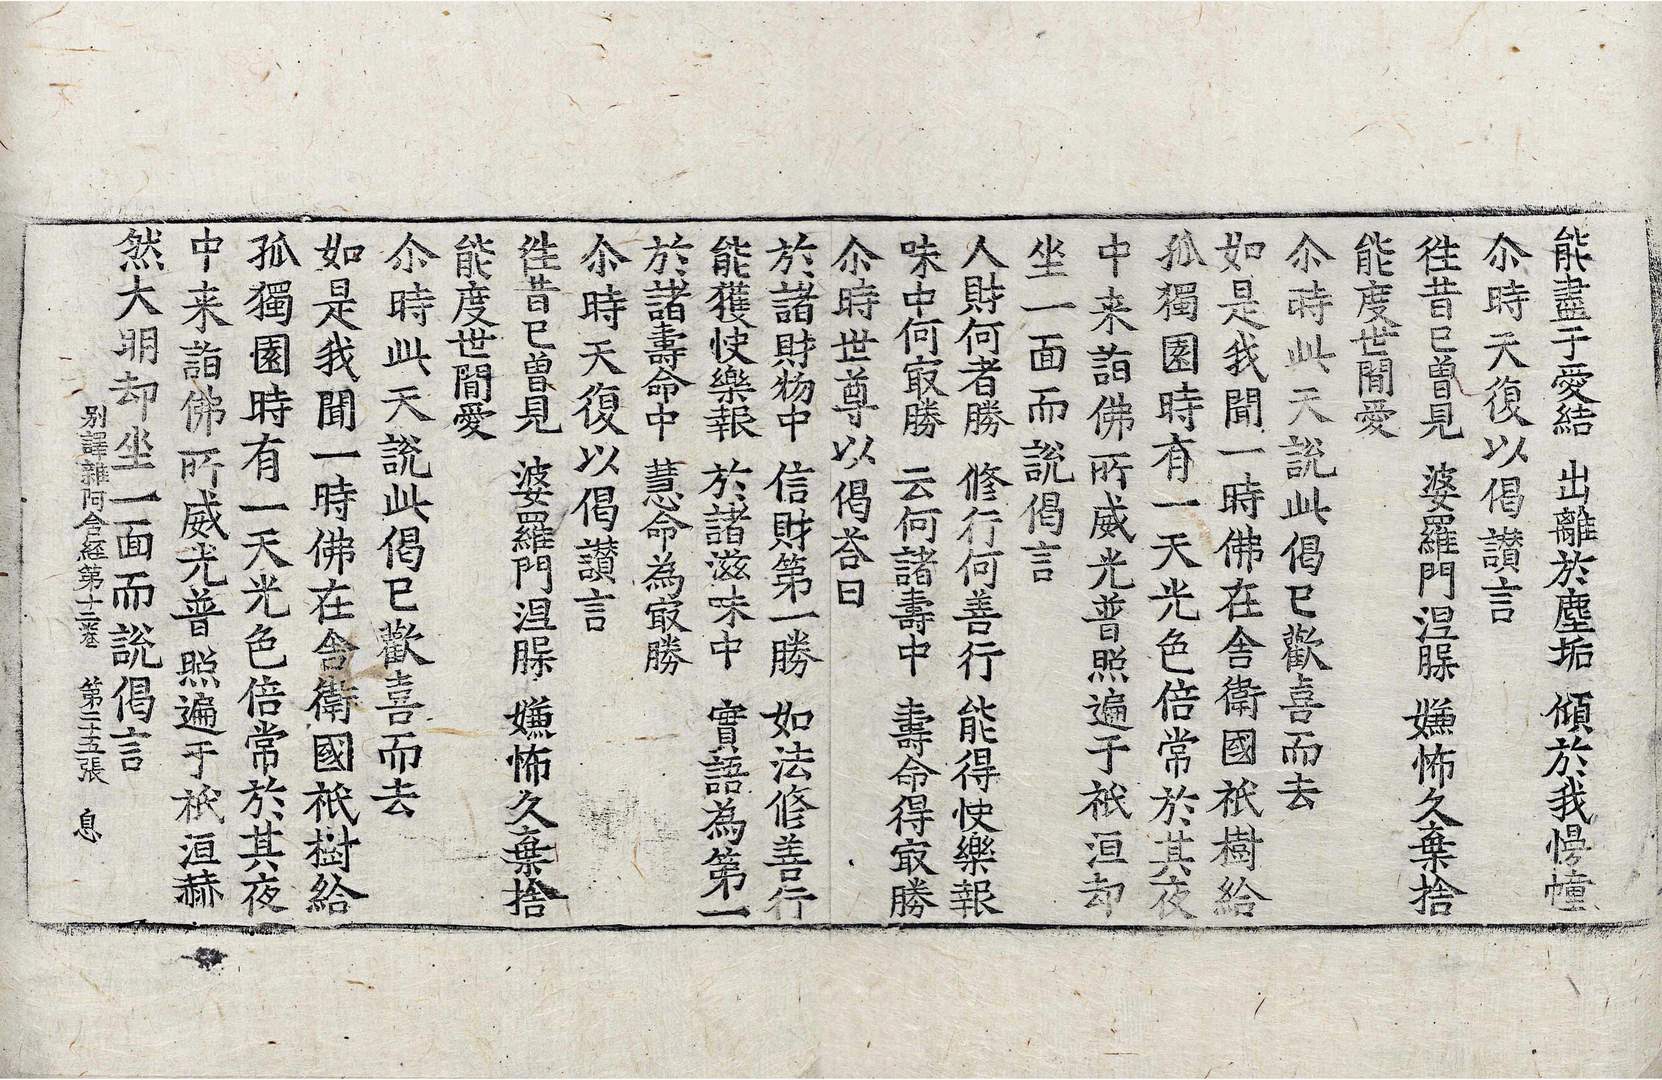 能盡于愛結　出離於塵垢　傾於我慢幢
尒時天復以偈讃言
徃昔已曾見　婆羅門涅脲　嫌怖久棄捨
能度世閒愛
尒時此天說此偈已歡喜而去
如是我聞一時佛在舍衛國祇樹給
孤獨園時有一天光色倍常於其夜
中来詣佛所威光普照遍于祇洹却
坐一面而說偈言
人財何者勝　修行何善行　能得快樂報
味中何㝡勝　云何諸壽中　壽命得㝡勝
尒時世尊以偈荅曰
於諸財物中　信財第一勝　如法修善行
能獲快樂報　於諸滋味中　實語為第一
於諸壽命中　慧命為㝡勝
尒時天復以偈讃言
徃昔已曾見　婆羅門涅脲　嫌怖久棄捨
能度世閒愛
尒時此天說此偈已歡喜而去
如是我聞一時佛在舍衛國祇樹給
孤獨園時有一天光色倍常於其夜
中来詣佛所威光普照遍于祇洹赫
然大明却坐一面而說偈言
別譯雜阿含經第十二卷　第二十五張　息